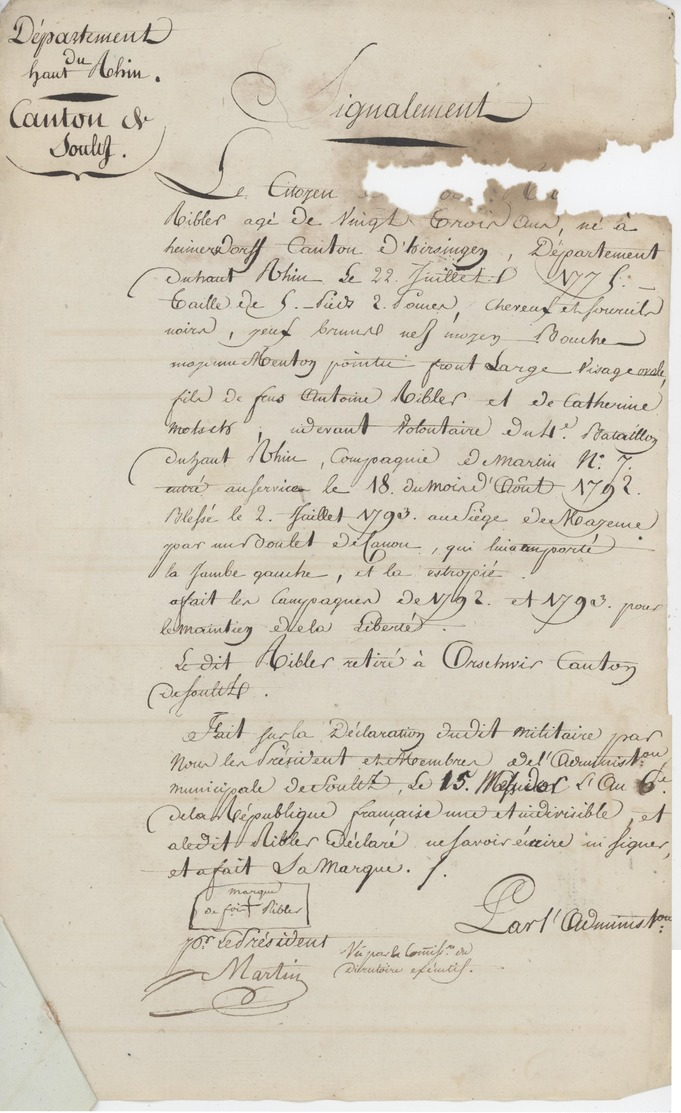 Département
du
haut Rhin.
Canton de
Soultz.
Signalement
Le Citoyen
Ribler agé de Vingt trois ans, né à
heimersdorff Canton d'hirsingen, Département
du haut Rhin Le 22. Juillet 1775. –
taille de 5. Pieds 2. Pouces, cheveux et sourcils
noirs, yeux bruns nes moyen Bouche
moyenne Menton pointu front Large Visage ovale,
fils de feus Antoine Ribler et de Catherine
cidevant Volontaire du 4e. Bataillon
du haut Rhin, Compagnie de Martin No. 7.
entré au service le 18. du mois d'Aôut 1792.
Blessé le 2. Juillet 1793. au Siège de Mayence
par un Boulet de Canon, qui lui a emporté
la Jambe gauche, et la estropié.
a fait les Campagnes de 1792. et 1793. pour
le maintien de la Liberté.
Le dit Ribler retiré à Orschwir Canton
de Soultz.
Fait sur la Déclaration du dit militaire par
Nous les Président et Membres de l'Administon
municipale de Soultz, Le 15. Messidor L'An 6e.
de la République française une et indivisible, et
a ledit Ribler Déclaré ne savoir écrire ni signer,
et a fait Sa Marque. /.
marque
de foi + Ribler
Par l'Administon.
pr. Le Président
Martin
Vu par le Comissre. du
Directoire exécutif.